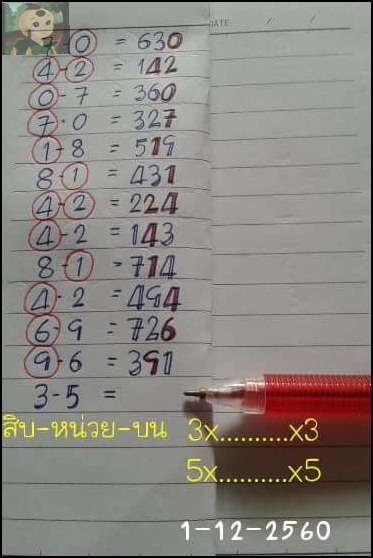 DATE: / /
7-0 = 630
4-2 = 142
0-7 = 360
7-0 = 327
1-8 = 519
8-1 = 431
4-2 = 224
4-2 = 143
8-1 = 714
4-2 = 494
6-9 = 726
9-6 = 391
3-5 =
สิบ-หน่วย-บน 3x..........x3
5x..........x5
1-12-2560